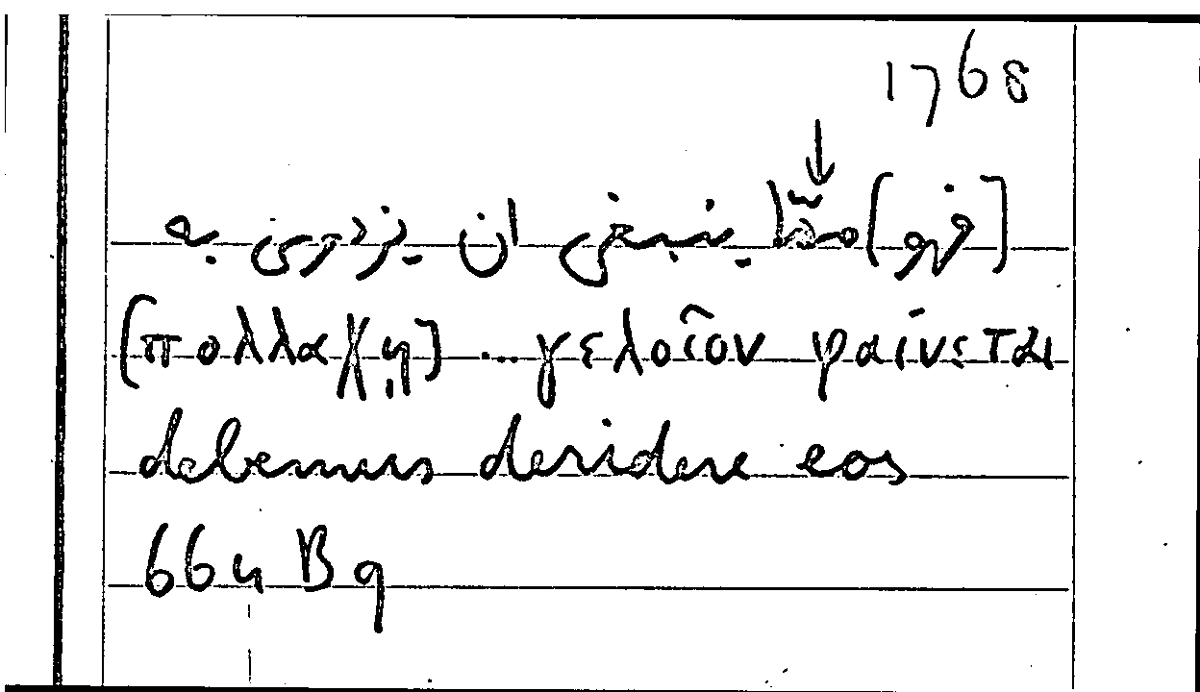 1768
[فهو] ممّا ينبغى ان يزدرى به
[πολλαχῃ] ... γελοῖον φαίνεται
debemus deridere eos
664 B9